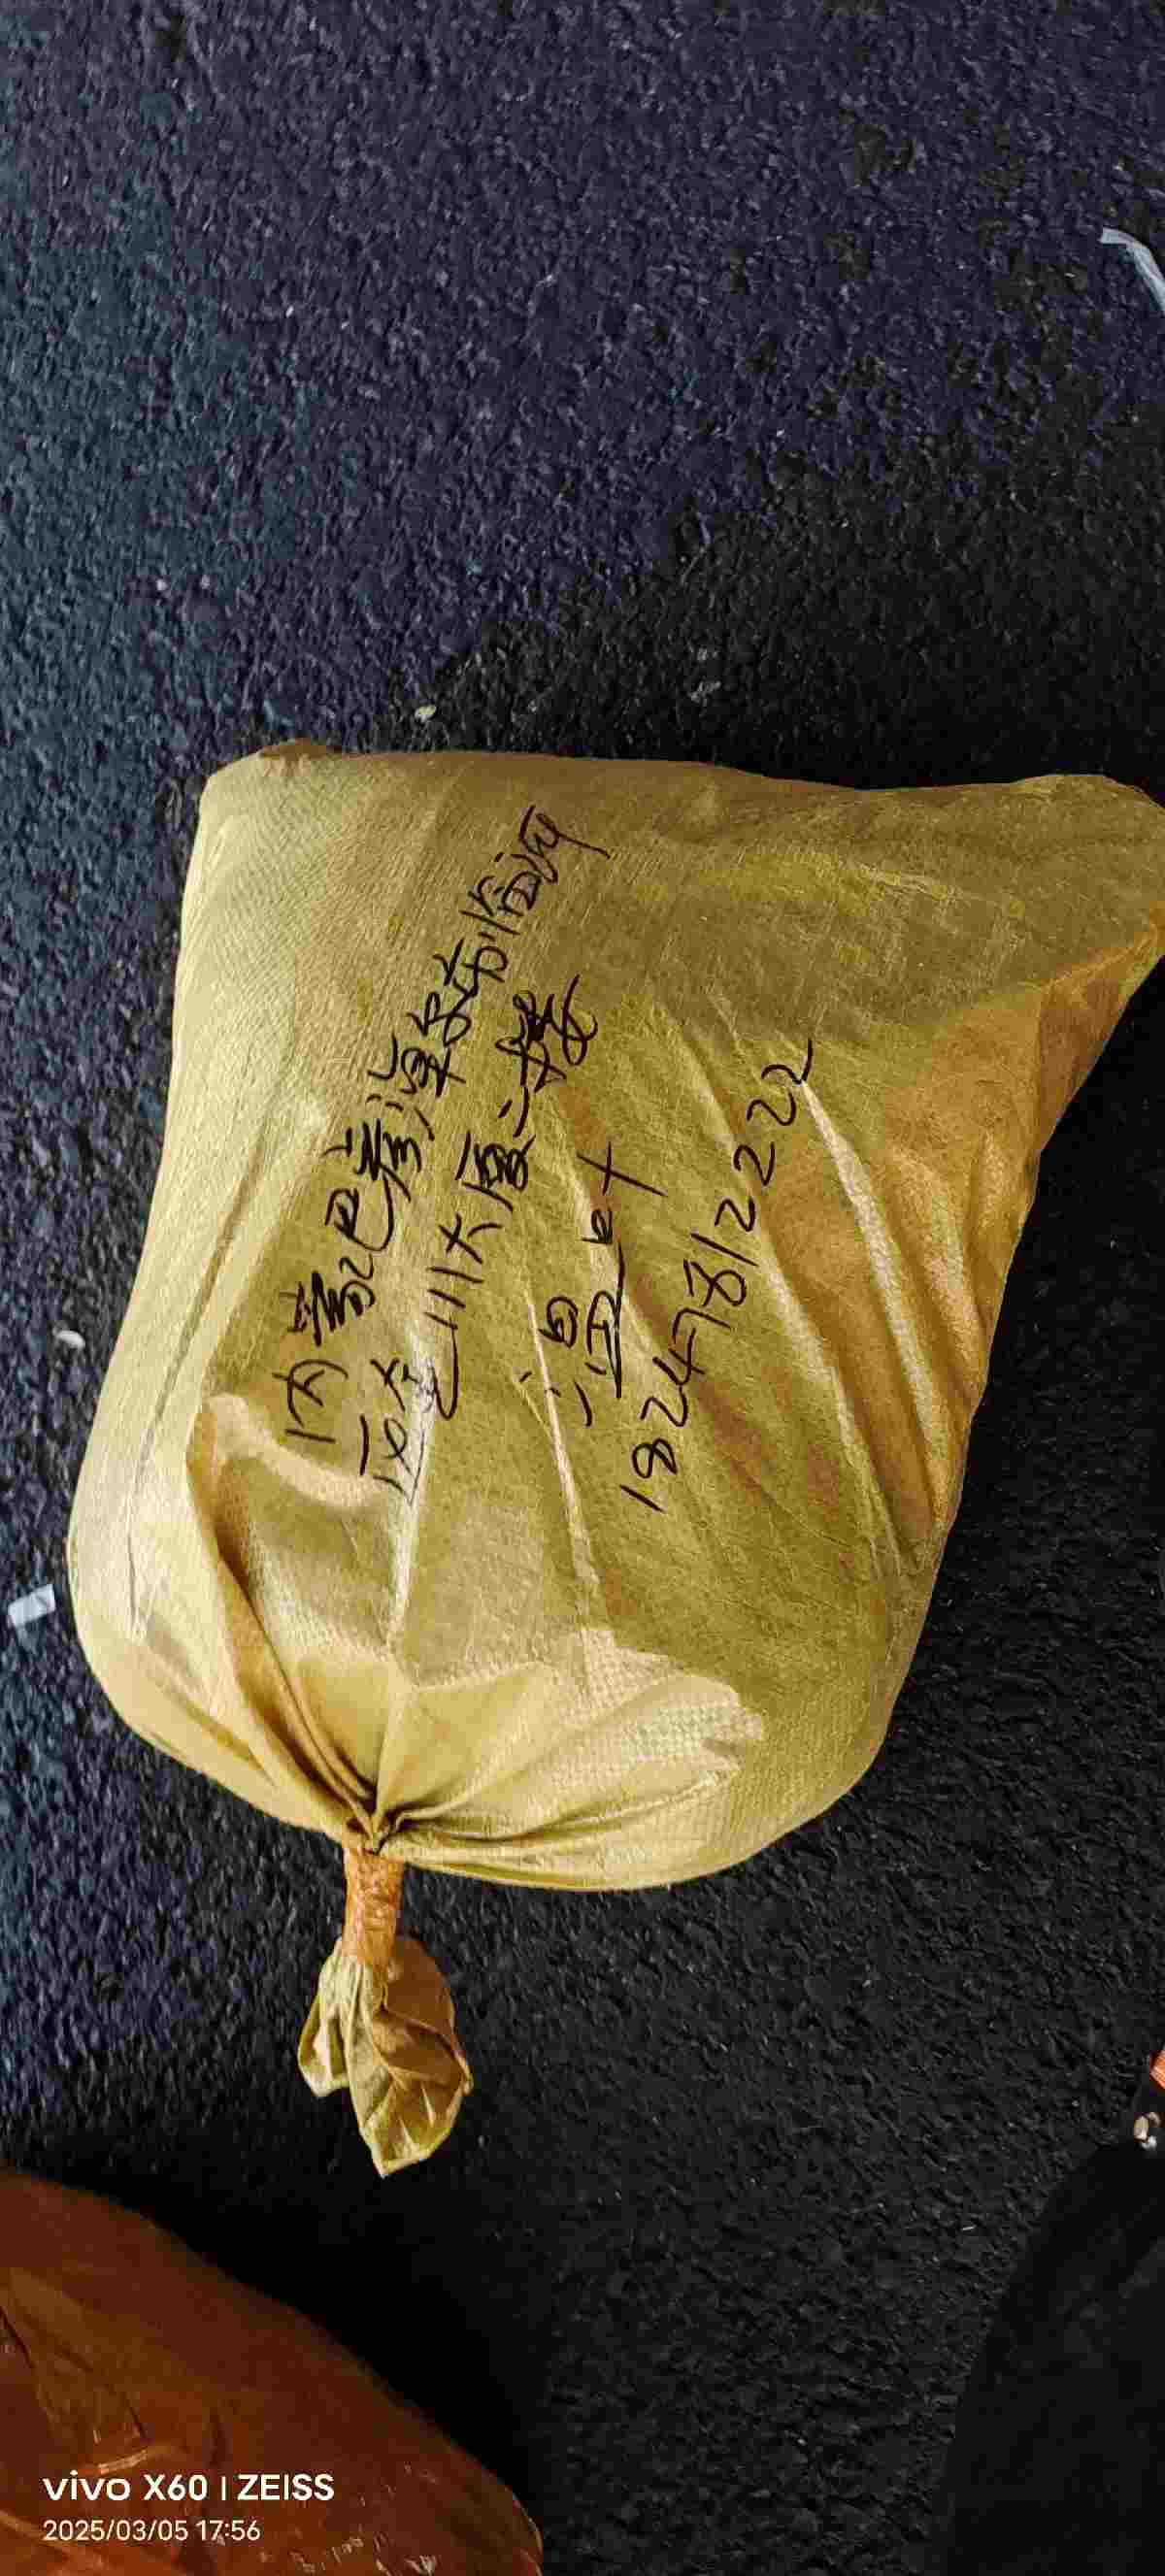 内蒙巴彦淖尔市临河
区金川大厦一楼
温
18247812222
vivo X60 | ZEISS
2025/03/05 17:56